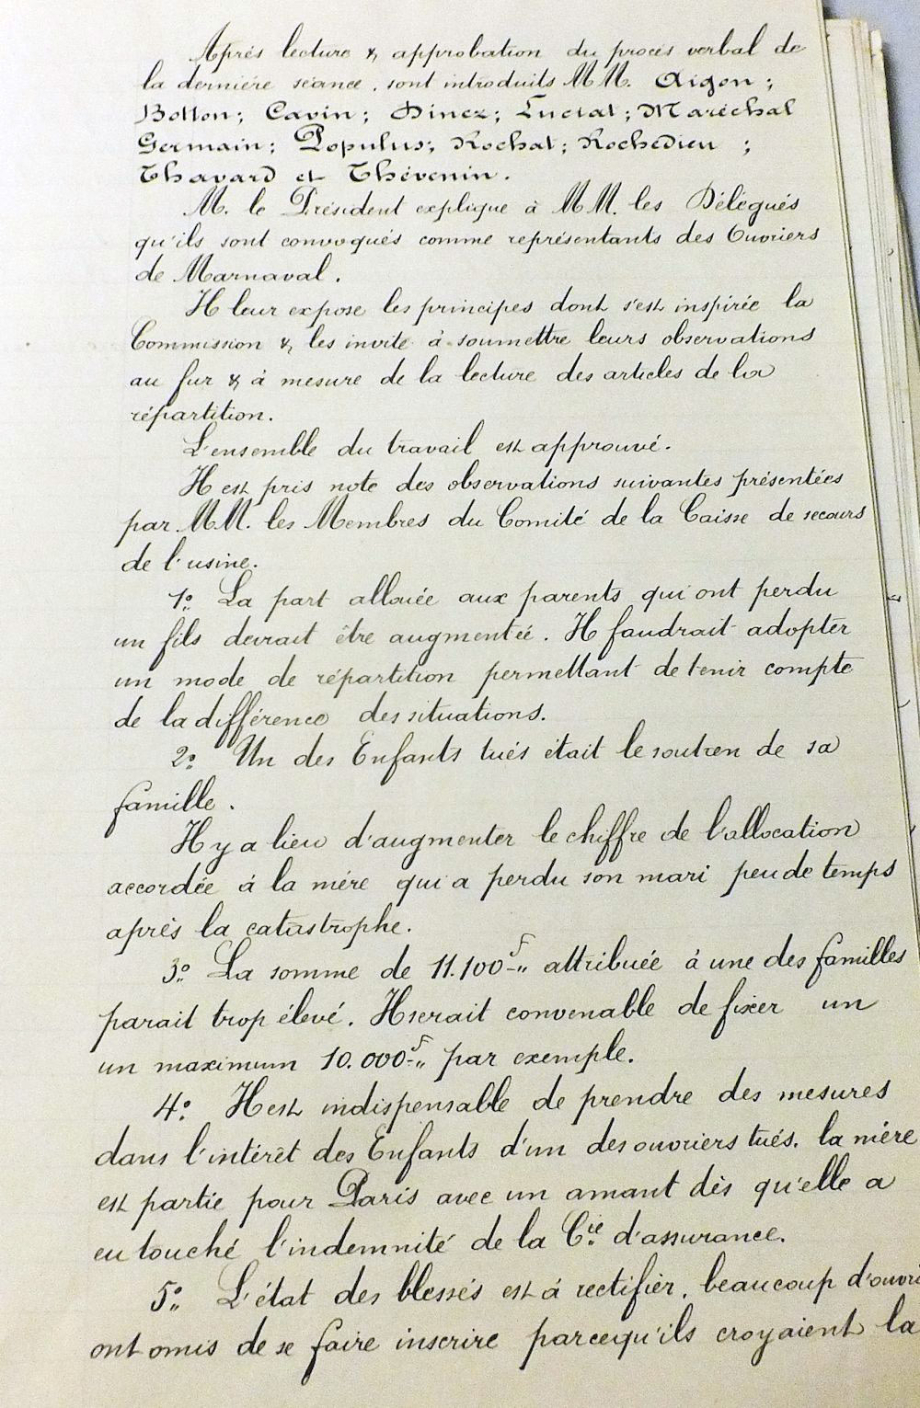 Après lecture & approbation du procès verbal de
la dernière séance, sont introduits MM. Aigon ;
Botton ; Cavin ; Dinez ; Luciat ; Maréchal
Germain ; Populus ; Rochat ; Rochedieu ;
Thavard et Thévenin.
M. le Président explique à MM. les Délégués
qu'ils sont convoqués comme représentants des Ouvriers
de Marnaval.
Il leur expose les principes dont s'est inspirée la
Commission & les invite à soumettre leurs observations
au fur & à mesure de la lecture des articles de la
répartition.
L'ensemble du travail est approuvé.
Il est pris note des observations suivantes présentées
par MM. les Membres du Comité de la Caisse de secours
de l'usine.
1º La part allouée aux parents qui ont perdu
un fils devrait être augmentée. Il faudrait adopter
un mode de répartition permettant de tenir compte
de la différence des situations.
2º Un des Enfants tués était le soutien de sa
famille.
Il y a lieu d'augmenter le chiffre de l'allocation
accordée à la mère qui a perdu son mari peu de temps
après la catastrophe.
3º La somme de 11.100F-" attribuée à une des familles
parait trop élevé. Il serait convenable de fixer un
un maximum 10.000F-" par exemple.
4º Il est indispensable de prendre des mesures
dans l'intérêt des Enfants d'un des ouvriers tués, la mère
est partie pour Paris avec un amant dès qu'elle a
eu touché l'indemnité de la Cie d'assurance.
5º L'état des blessés est à rectifier, beaucoup d'ouvri
ont omis de se faire inscrire parcequ'ils croyaient la